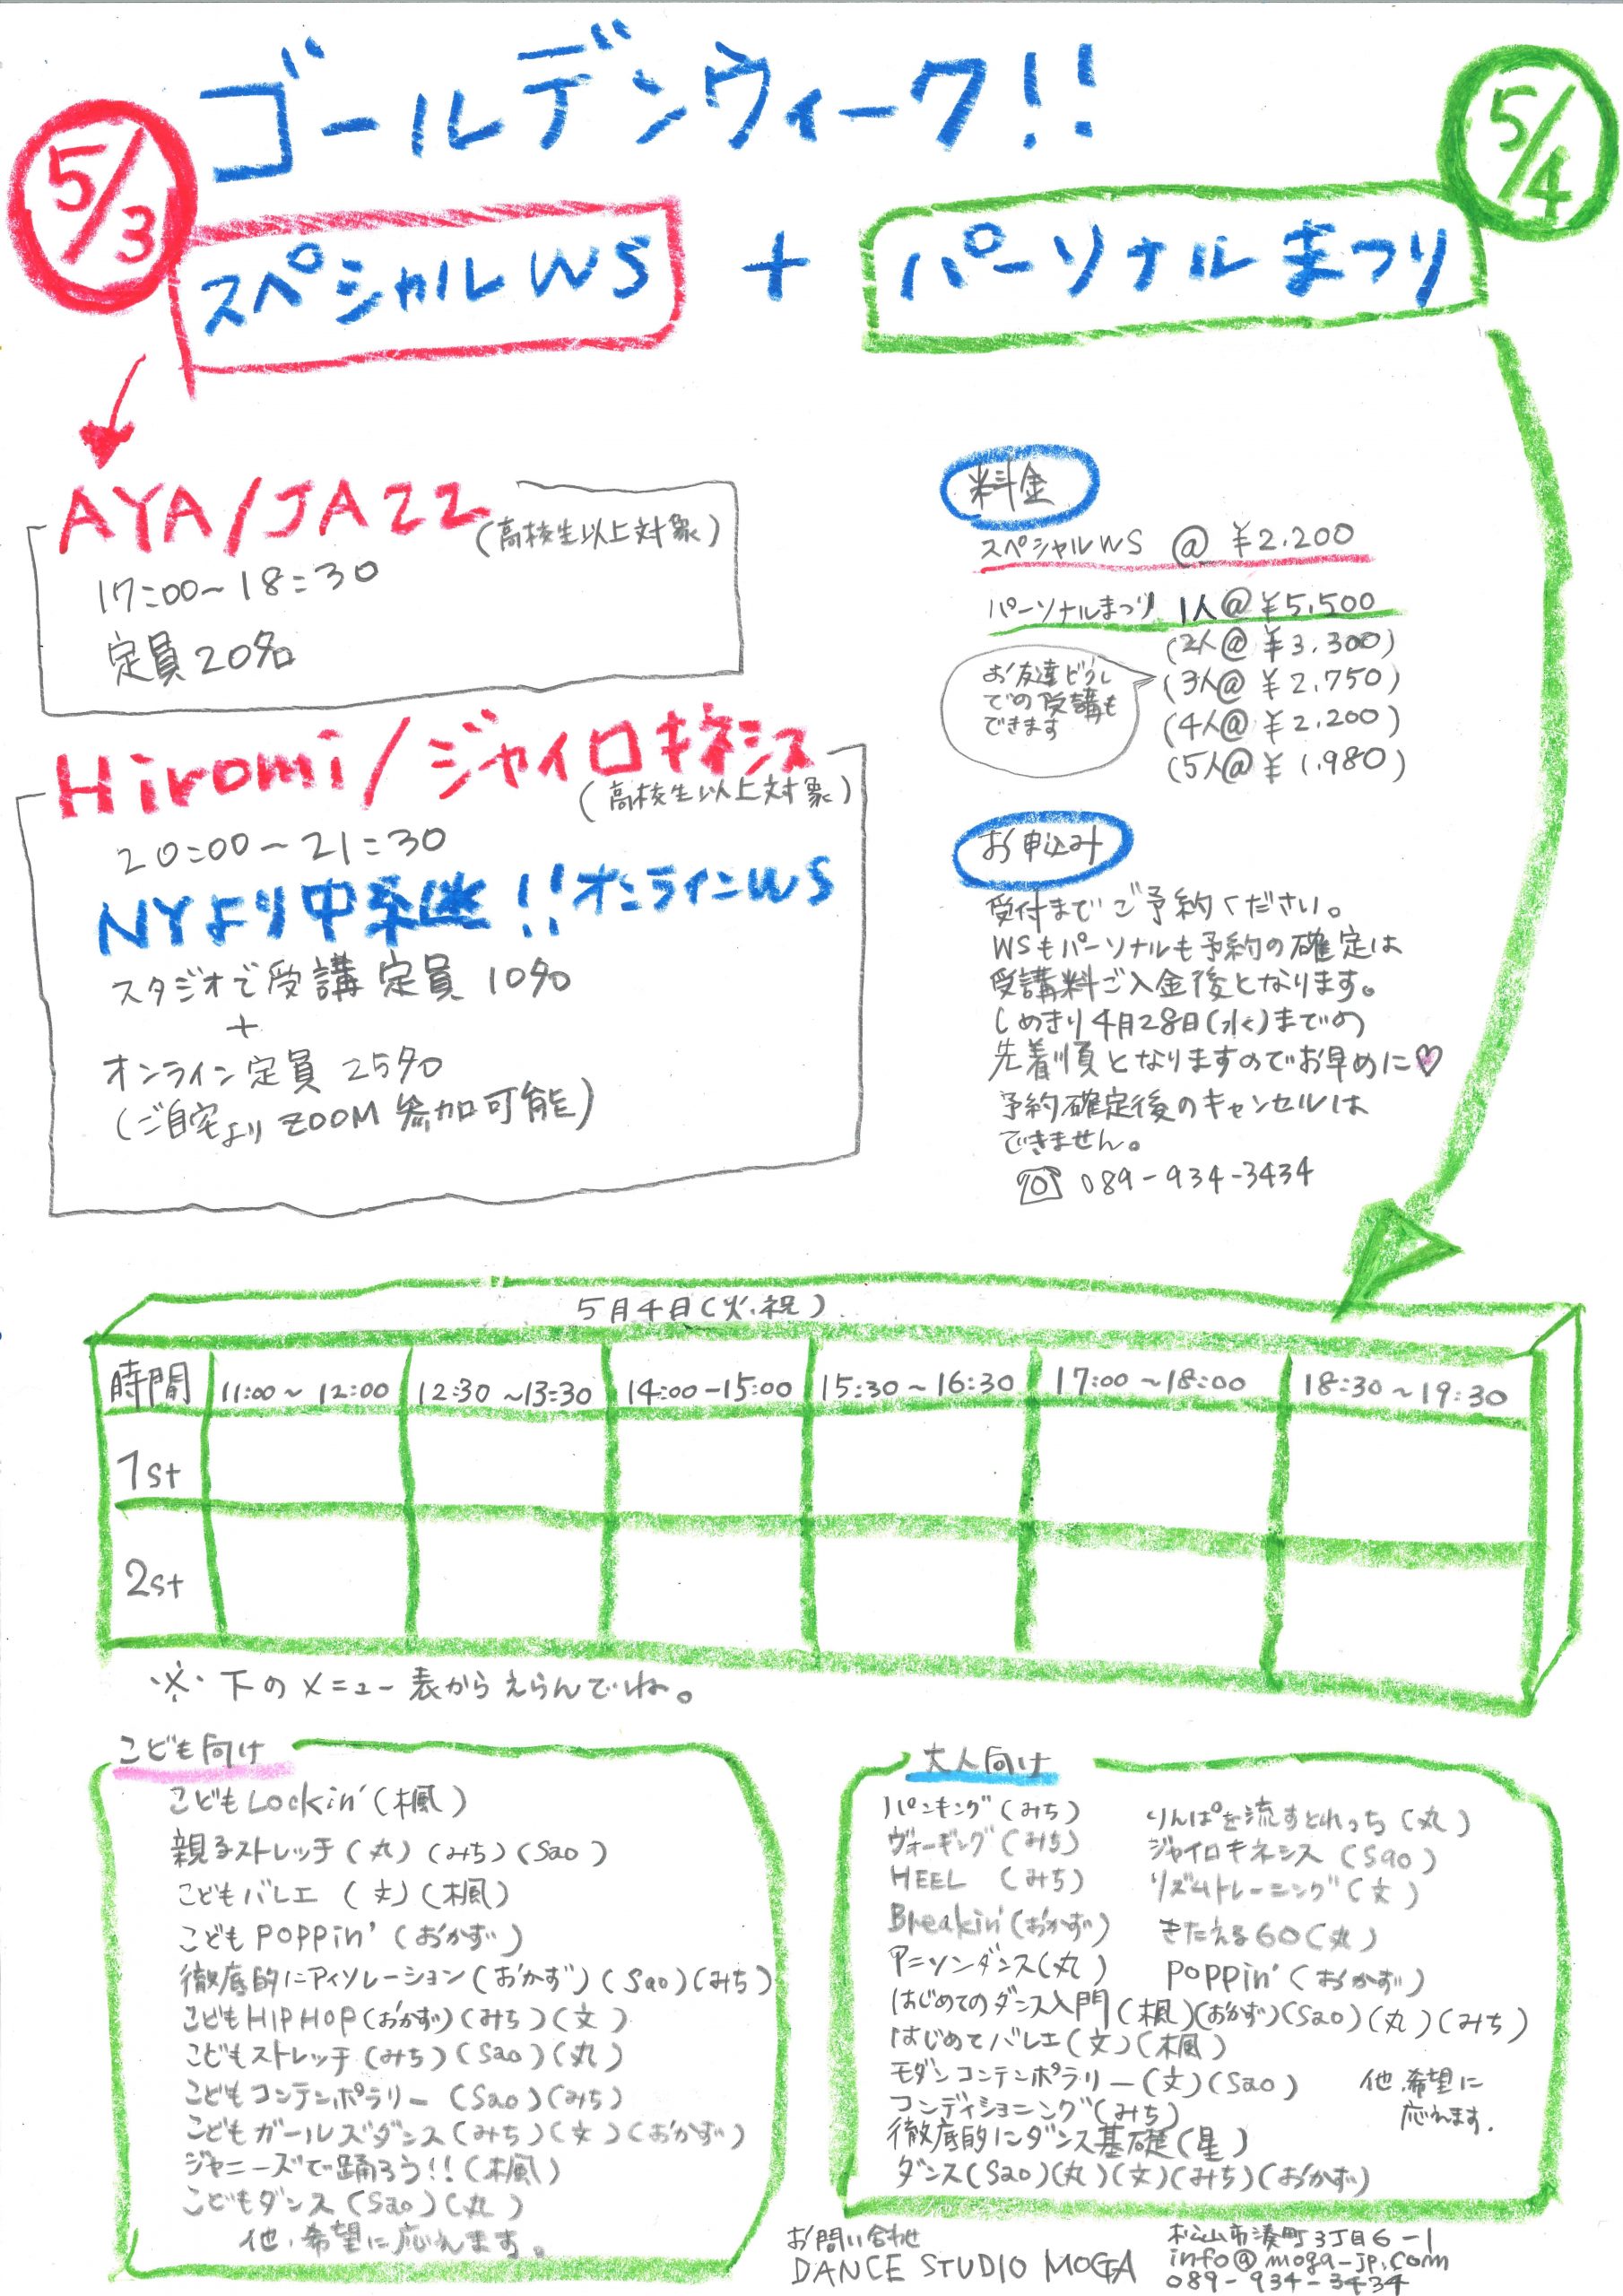 ゴールデンウィーク!!
5/3
5/4
スペシャルWS + パーソナルまつり
AYA/JAZZ
(高校生以上対象)
17:00~18:30
定員20名
Hiromi/ジャイロキネシス
(高校生以上対象)
20:00~21:30
NYより中継!!オンラインWS
スタジオで受講 定員 10名
+
オンライン定員 25名
(ご自宅より ZOOM 参加可能)
料金
スペシャルWS @ ¥2.200
パーソナルまつり 1人@ ¥5,500
(2人@ ¥3.300)
(3人@ ¥2.750)
(4人@ ¥2.200)
(5人@ ¥1.980)
お友達どうし
での受講も
できます
お申込み
受付までご予約ください。
WSもパーソナルも予約の確定は
受講料ご入金後となります。
しめきり4月28日(水)までの
先着順となりますのでお早めに♡
予約確定後のキャンセルは
できません。
☎ 089-934-3434
5月4日(火・祝)
時間 11:00~12:00 12:30~13:30 14:00-15:00 15:30~16:30 17:00~18:00 18:30~19:30
1st
2st
※下のメニュー表からえらんでね。
こども向け
こどもLockin'(楓)
親子ストレッチ(丸)(みち)(Sao)
こどもバレエ (文)(楓)
こどもPOPPin'(おかず)
徹底的にアイソレーション(おかず)(Sao)(みち)
こどもHIPHOP(おかず)(みち)(文)
こどもストレッチ(みち)(Sao)(丸)
こどもコンテンポラリー(Sao)(みち)
こどもガールズダンス(みち)(文)(おかず)
ジャニーズで踊ろう!!(楓)
こどもダンス(Sao)(丸)
他、希望に応えます。
大人向け
パンキング(みち)
ヴォーギング(みち)
HEEL (みち)
Breakin'(おかず)
アニソンダンス(丸)
りんぱを流すとれっち(丸)
ジャイロキネシス(Sao)
リズムトレーニング(文)
きたえる60(丸)
POPPin'(おかず)
はじめてのダンス入門(楓)(おかず)(Sao)(丸)(みち)
はじめてバレエ(文)(楓)
モダンコンテンポラリー(文)(Sao)
コンディショニング(みち)
徹底的にダンス基礎(星)
ダンス(Sao)(丸)(文)(みち)(おかず)
他、希望に
応えます.
お問い合わせ
DANCE STUDIO MOGA
松山市湊町3丁目6-1
info@moga-jp.com
089-934-3434